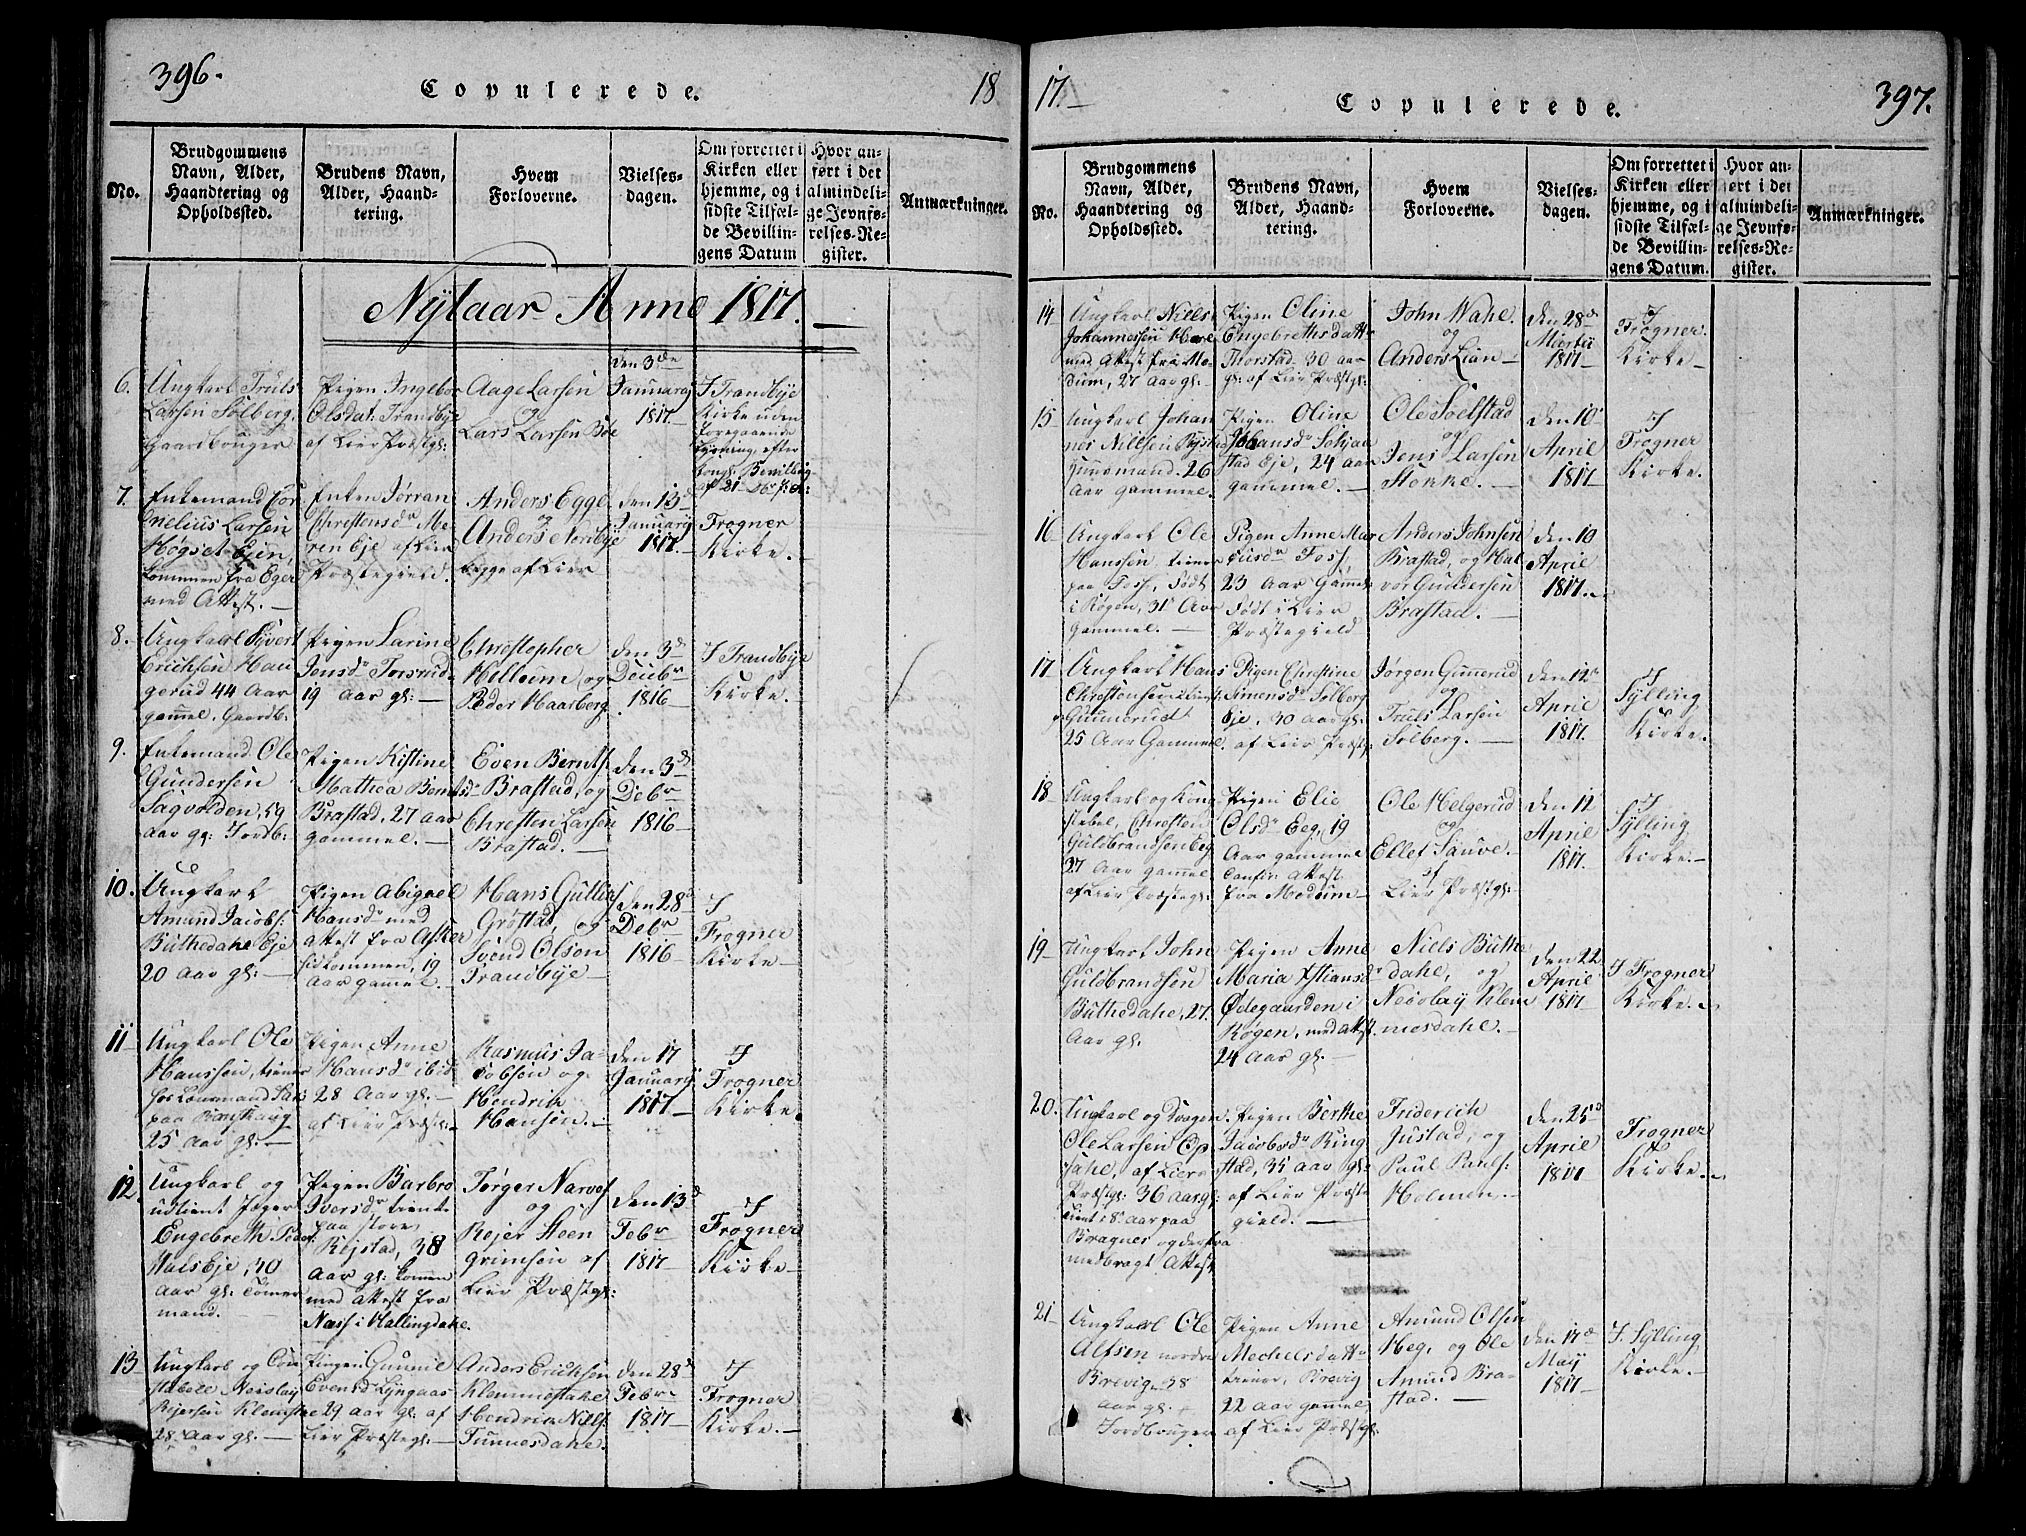 396.
Copulerede.
18
No.
Brudgommens
Navn, Alder,
Haandtering og
Opholdssted.
Brudens Navn,
Alder, Haand-
tering.
Hvem
Forloverne.
Vielses-
dagen.
Om forrettet i
Kirken eller
hjemme, og i
sidste Tilfæl-
de Bevillin-
gens Datum
Hvor an-
ført i det
almindeli-
ge Jevnfø-
relses-Re-
gister.
Anmærkninger.
Nÿtaar Anno 1817.
6.
Ungkarl Truls
Larsen Solberg,
Gaardbruger
Pigen Ingebor
Olsdat. Trandbÿe
af Lier Præstgl:
Aage Larsen
og
Lars Larsen Bøe
den 3de
Januarÿ
1817.
I Trandbÿe
Kirke uden
foregaaende
Lysning, efter
kongl. Bevilling
7.
Enkemand Cor
nelius Larsen
Høgset Ejen,
kommen fra Eger
med Attest.
Enken Jørran
Christensdr Me-
ren Eje af Lier
Præstegield.
Anders Egge
og
Anders Nordbÿe
begge af Lier
den 13d
Januarÿ
1817.
Frogner
Kirke.
8.
Ungkarl Syvert
Erichsen Hau
gerud 44 Aar
gammel, Gaardb.
Pigen Larine
Jensdr Torsrud
19 aar gl:
Christopher
Hellum og
Peder Haarberg
den 3d
Decbr
1816
I Trandbÿe
Kirke.
9.
Enkemand Ole
Gundersen
Sagvolden, 59
aar gl: Jordb:
Pigen Kistine
Mathea Berntsdr
Brastad, 27 aar
gammel.
Even Bernts:
Brastad, og
Christen Larsen
Brastad.
den 3d
Debr
1816
10.
Ungkarl
Amund Jacobs:
Buthedahl Eje
20 aar gl:
Pigen Abigael
Hansdr med
Attest fra Asker
sidkommen, 19
aar gamel.
Hans Gulliks
Grøstad, og
Svend Olson
Trandbÿe
den 28d
Debr
1816
I
Frogner
Kirke
11
Ungkarl Ole
Hanssen, tiener
25 Aar gl:
Pigen Anne
Hansdr ibid
28 Aar gl:
af Lier Præstgl.
Rasmus Ja-
cobsen og
Hendrik
Hansen.
den 17
Januarÿ
1817
I
Frogner
Kirke.
12.
Ungkarl og
udtient Jæger
Engebreth Peder
Huls Eje, 30
Aar gl: Tømer
mand.
Pigen Barbro
Iversdr tiente
paa store
Rejstad, 38
Aar gl: kommen
med Attest fra
Næss i Hallingdahl.
Tørger Narves
og
Rejer Steen
Grimsen af
Lier Præstgl:
den 13d
Febr
1817
I
Frogner
Kirke
13
Ungkarl og Con
stabele Neiolaÿ
Rejersen Klemstae
28 Aar gl:
Pigen Gunnel
Evensd Lyngaas
29 aar gl: af
Lier Præstegl:
Anders Erichsen
Klemmestahe
Hendrik Niels:
Tunnesdahe.
den 28d
Febr
1817
I
Frogner
Kirke.
17
Copulerede.
397.
No.
Brudgommens
Navn, Alder,
Haandtering og
Opholdssted.
Brudens Navn,
Alder, Haand-
tering.
Hvem
Forloverne.
Vielses-
dagen.
Om forrettet i
Kirken eller
hjemme, og i
sidste Tilfæl-
de Bevillin-
gens Datum.
Hvor an-
ført i det
almindeli-
ge Jevnfø-
relses-Re-
gister.
Anmærkninger.
14
Ungkarl Nills
Johannesen Hæve
med Attest fra Mo-
dum, 27 aar gl:
Pigen Oline
Engebrethsdattr
Thorstad. 30 aar
gl: af Lier Præstgl:
John Wahe
og
Anders Lian
den 28d
Martii
1817
I
Frogner
Kirke
15
Ungkarl Johan
nes Nillsen Rejstad
huusmand 26
Aar gammel.
Pigen Oline
Johansdr Solgaa
stad Eje, 24 aar
gammel.
Ole Soelstad
og
Jens Larsen
Stokke.
den 10
April
1817
I
Frogner
Kirke
16
Ungkarl Ole
Hanssen, tiener
paa Foss, født
i Røgen, 31 Aar
gammel.
Pigen Anne Mar
Foss,
23 Aar Gammel
født i Lier
Præstegield
Anders Johnsen
Brastad, og Hal
vor Gundersen
Brastad.
den 10
April
1817.
17
Ungkarl Hans
Christensen
Gunnerud
25 Aar Gammel.
Pigen Christine
Simensdr Solberg
Eje, 30 aar gl:
af Lier Præstgl:
Jørgen Gunnerud
og
Truls Larsen
Solberg.
den 12te
April
1817.
I
Sylling
Kirke.
18
Ungkarl og Kon
stabel, Christen
Guldbrandsen Eeg
27 Aar gammel
af Lier Præstegl:
Pigen Elie
Olsdr Eeg, 19
Aar gammel
Confir: Attest
fra Modum
Ole Helgerud
og
Ellef Sauve.
af
Lier Præstgl:
den 12
April
1817.
I
Sylling
Kirke.
19
Ungkarl John
Guldbrandsen
Buthedahe, 27.
Aar gl.
Pigen Anne
Maria Xstiansdr
Ødegaarden i
Røgen, med Attest
24 Aar gl.
Niels Buthe
dahe, og
Neiolaÿ Klem
mesdahe.
den 22
April
1817
I Frogner
Kirke.
20.
Ungkarl og Dragon
Ole Larsen Op
sahl, af Liers
Præstgl: 36 aar gl,
tient i 8 aar paa
Bragnes og derfra
medbragt Attest
Pigen Berthe
Jacobsdr Ring
stad, 35 aar gl:
af Lier Præste
gield.
Friderich
Justad, og
Paul Pauls:
Holmen.
den 25d
April
1817
Frogner
Kirke.
21
Ungkarl Ole
Alfsen nordre
Brevig, 38
aar gl.
Jordbruger
Pigen Anne
Mechelsdattr
tiener, Brevig
22 aar gamel
af Lier Præstgl.
Amund Olsen
Heg, og Ole
Amund Bra-
stad.
den 17d
Maÿ
1817
I. Sylling
Kirke.